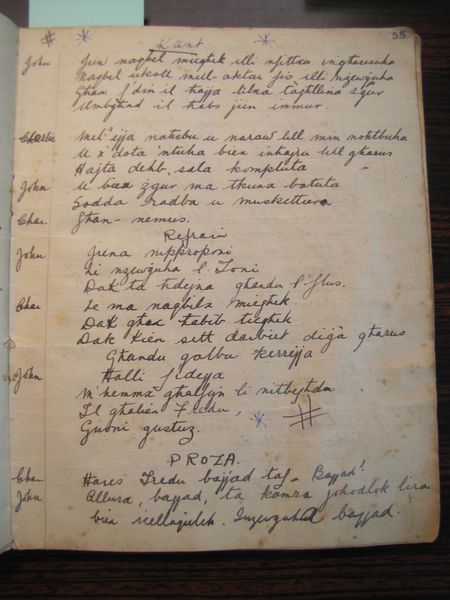 35
Kant
John Jien naqbel miegħek illi npittru ingħarusuha
Naqbel ukoll mill aktar fis illi nzewguha
Għax f'din il hajja tilna tagħtlina sgur
Umbghad il habs jien immur.
Charlie Mela ejja nahsbu u naraw lill min nohtbuha
U x' dota 'ntuha biex inhajru lill għarus
Hajta deheb, sala kompluta
John U biex zgur ma tkunx batuta
Sodda hadba u muskettiera
Char. Għan-nemus.
Refrain
John Jiena nipproponi
Li nzewguha l. Toni
Dak ta hdejna għandu l flus.
Char Le ma naqbilx miegħek
Dak għax habib tiegħek
Dak kien sitt darbiet diġà għarus
Għandu qalbu kerrejja
John Halli f'idejja
M'hemmx għalfejn li nitbeghdu
Il għaliex Fredu,
Guboni gustuz.
PROZA.
Char Hares Fredu bajjad taf - Bajjad!
John Allura, bajjad, ta kamra johodlok lira
biex icellaqulek. Inzewguha bajjad.